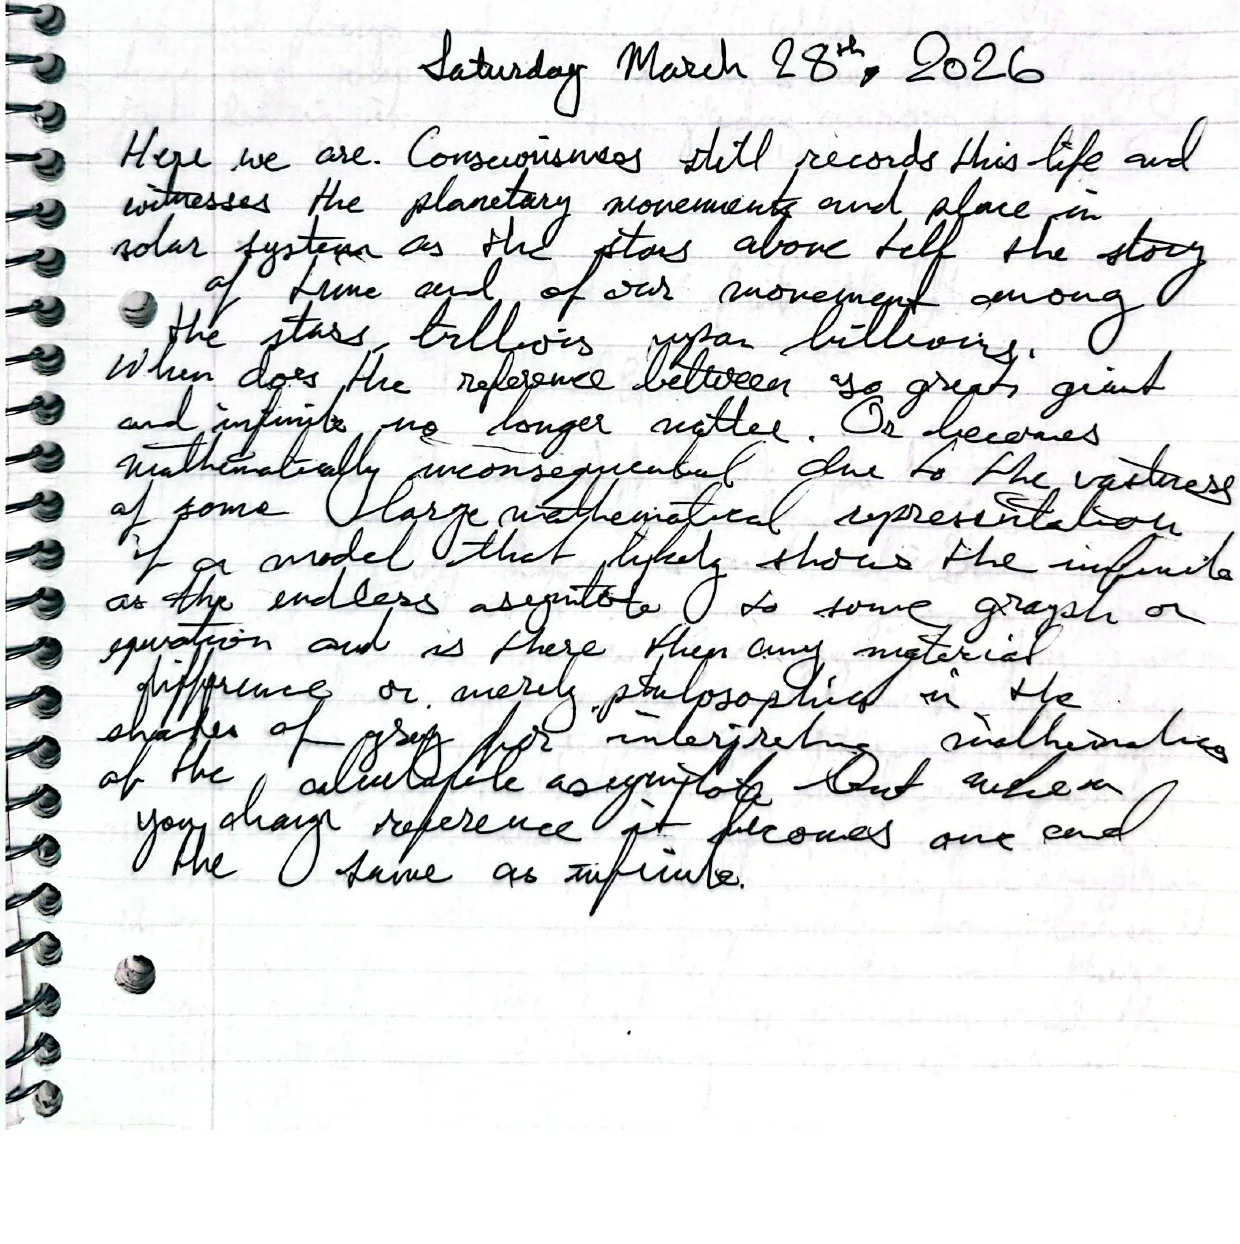 Saturday March 28th, 2026
Here we are. Consciousness still records this life and
witnesses the planetary movements and place in
solar system as the stars above tell the story
of time and of our movement among
the stars, trillions upon billions.
When does the reference between so great, giant
and infinite no longer matter. Or becomes
mathematically inconsequential due to the vastness
of some large mathematical representation
if a model that likely shows the infinite
as the endless asymtote to some graph or
equation and is there then any material
difference or merely philosophical in the
shades of grey for interpreting mathematics
of the calculatable asymtote But when
you change reference it becomes one and
the same as infinite.